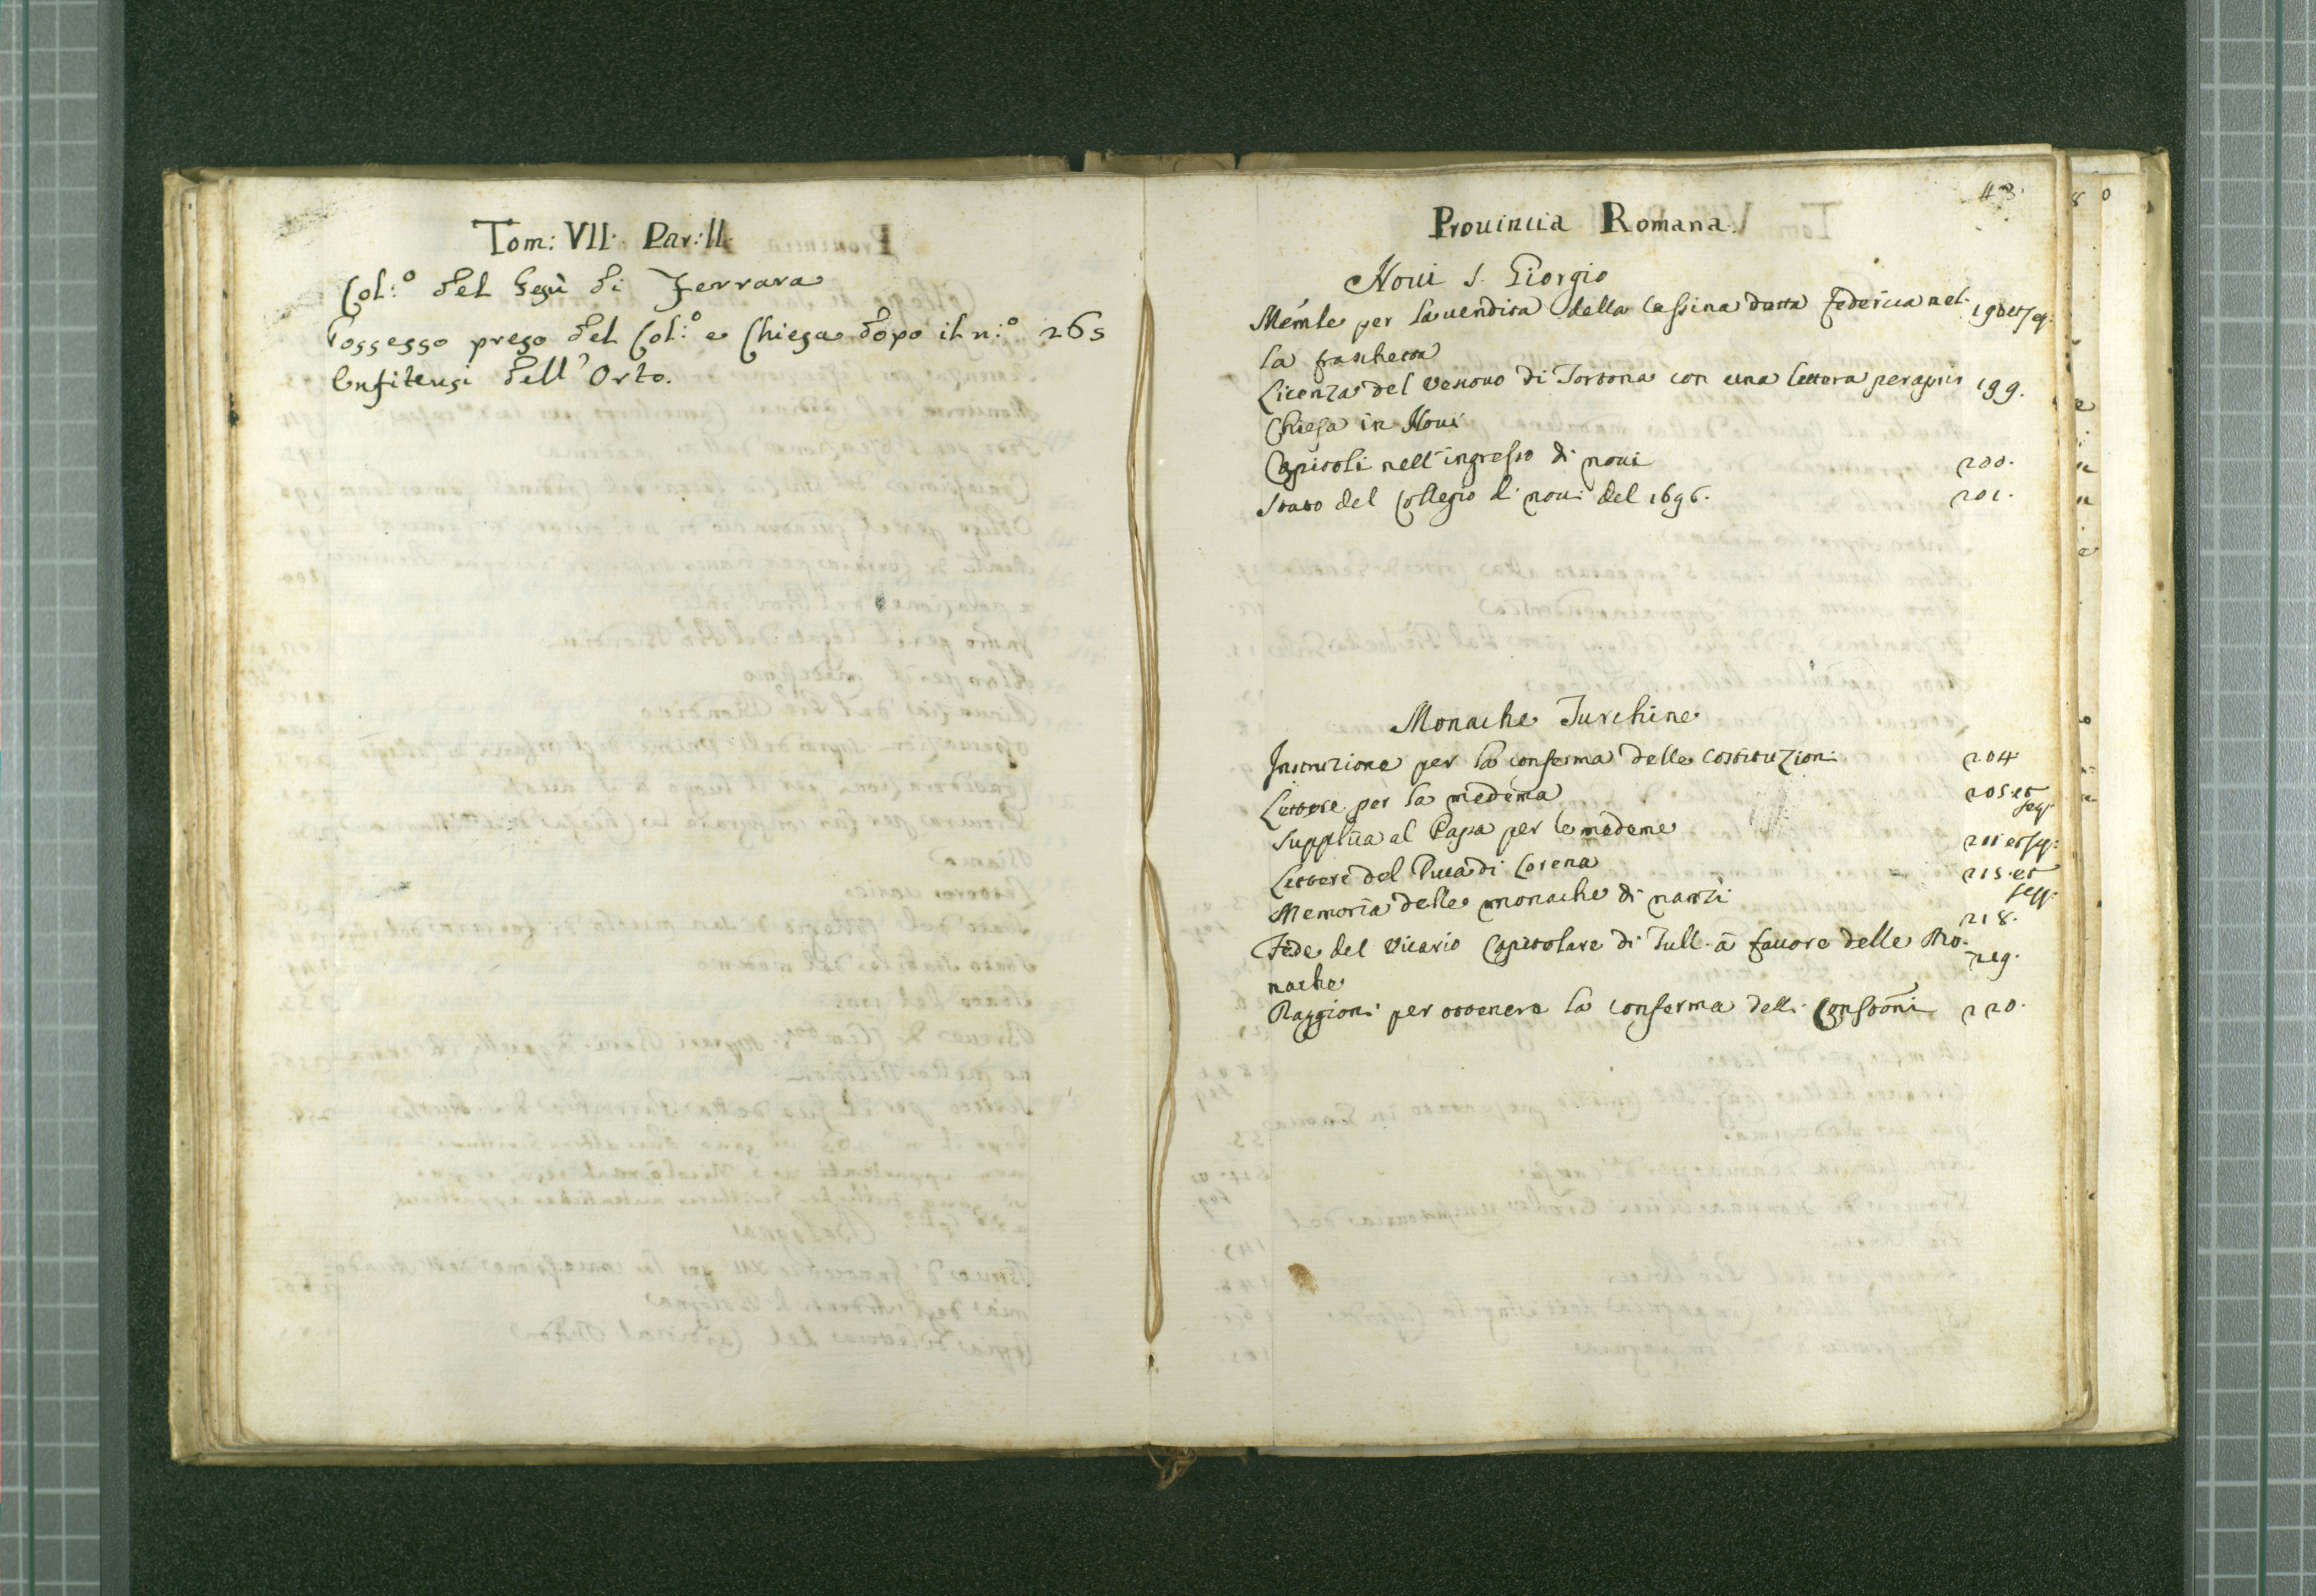 Tom: VII. Par: II.
Col:º del Gesù di Ferrara
Possesso preso del Col:º e Chiesa dopo il n:º 265
Enfiteusi dell' Orto.
43.
Prouincia Romana.
Noui S. Giorgio
Memle per la uendita della Cassina detta Federica nel- 198 et seq.
la fraschetta
Licenza del Vescouo di Tortona con una lettera per aprir 199.
Chiesa in Noui
Capitoli nell' ingresso di noui 200.
Stato del Collegio di noui del 1696. 201.
Monache Turchine
Instruzione per la conferma delle costituzioni 204
Lettere per la medema 205 et seq.
Supplica al Papa per le medeme 211 et seq.
Lettere del Duca di Lorena 215. et seqq.
Memoria delle monache di nansi 218.
Fede del Vicario Capitolare di Tull. à fauore delle Mo- 219.
nache
Raggioni per ottenere la conferma delle Constōni 220.